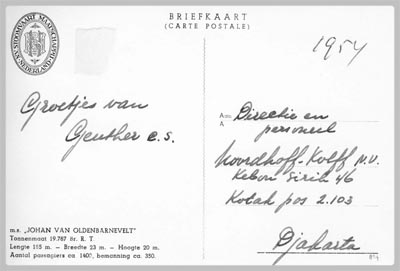 BRIEFKAART
(CARTE POSTALE)
STOOMVAART MAATSCHAPPIJ NEDERLAND
1954
Groetjes van
Genther e.s.
Aan
A
Directie en
personeel
Noordhoff-Kolff N.V.
Kebon Sirih 46
Kotak pos 2.103
Djakarta
m.s. „JOHAN VAN OLDENBARNEVELT"
Tonnenmaat 19.787 br. R. T.
Lengte 185 m. — Breedte 23 m. — Hoogte 20 m.
Aantal passagiers ca 1400, bemanning ca. 350.